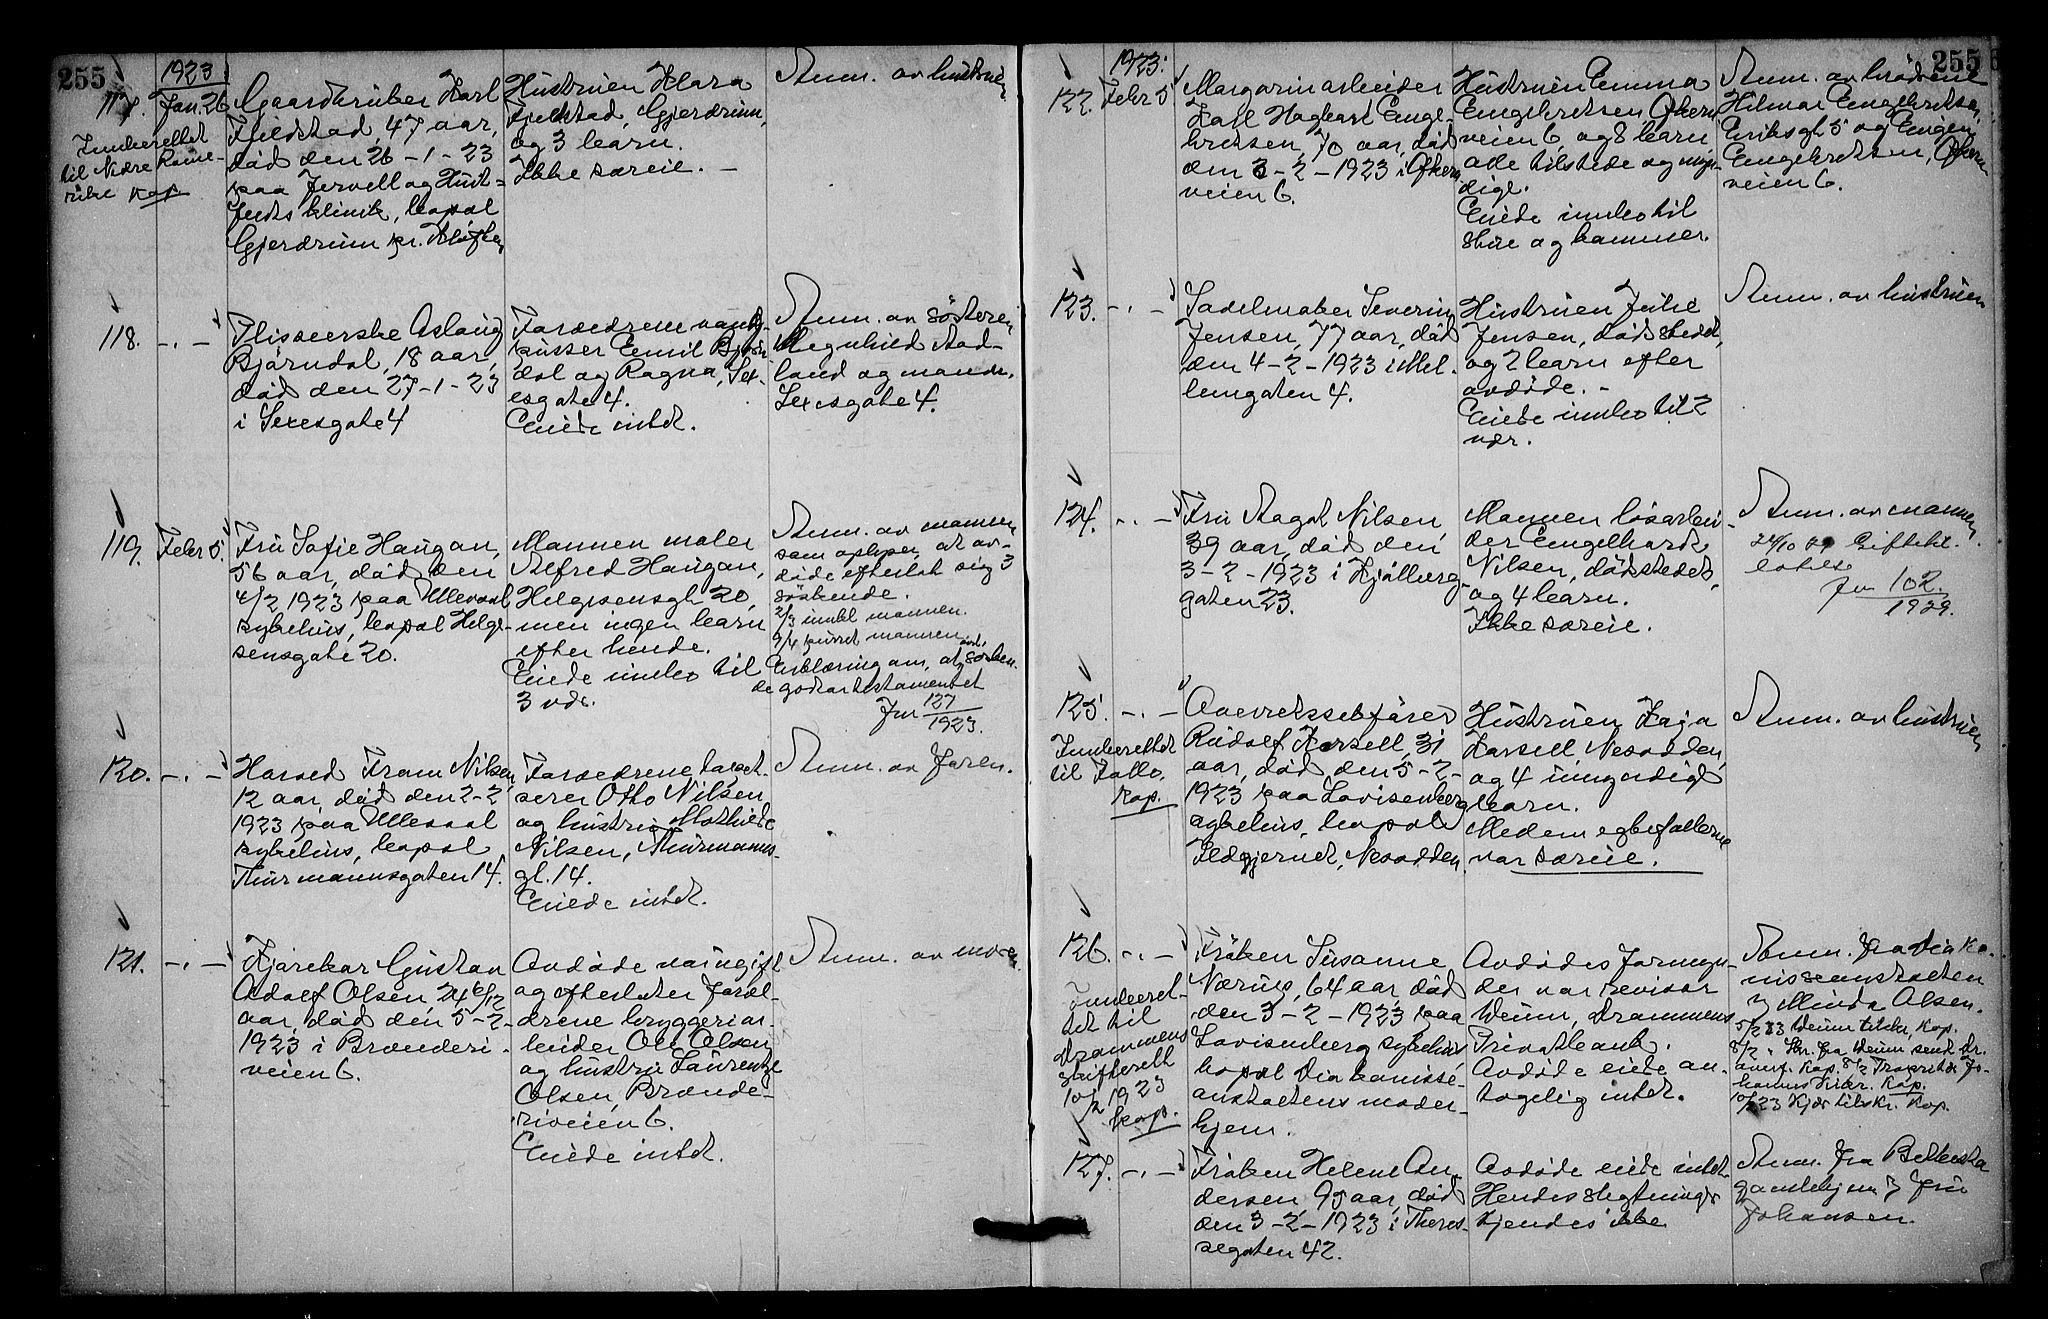 255
1923
117. Jan. 26
Indberettet
til Nedre Rome-
rike Kop
Gaardbruker Karl
Fjeldstad, 47 aar,
død den 26-1-23
paa Jervell og Huit-
feldts klinik, bopæl
Gjerdrum pr. Kløften
Hustruen Klara
Fjeldstad, Gjerdrum,
og 3 barn.
Ikke særeie. -
Anm. av hustruen
118. - " -
Plisseerske Aslaug
Bjørndal, 18 aar,
død den 27-1-23
i Sexesgate 4
Forældrene
pusser Emil Bjørn-
dal og Ragna, Sex-
esgate 4.
Eiede intet.
Anm. av søsteren
Magnhild Aad-
land og mand,
Sexesgate 4.
119. Febr 5.
Fru Sofie Haugan,
56 aar, død den
4/2 1923 paa Ullevaal
sykehus, bopæl Helge-
sensgate 20.
Mannen maler
Alfred Haugan,
Helgesensgt 20,
men ingen barn
efter hende.
Eiede indbo til
3 vdr.
Anm. av mannen
som oplyser, at av-
døde efterlot sig 3
søskende.
2/3 innk mannen.
9/4 mannen
Erklæring om, at søsken-
de godtar testamentet
Jnr 127
1923.
120. - " -
Harald Fram Nilsen
12 aar, død den 2-2
1923 paa Ullevaal
sykehus, bopæl
Thurmannsgaten 14.
Forældrene tapet-
serer Otto Nilsen
og hustru Mathilde
Nilsen, Thurmanns-
gt. 14.
Eiede intet.
Anm. av faren.
121. - " -
Kjørekar Gustav
Adolf Olsen, 24 6/12
aar, død den 5-2-
1923 i Brænderi-
veien 6.
Avdøde var ugift
og efterlater foræl-
drene bryggeriar-
beider Ole Olsen
og hustru Laurentze
Olsen, Brænde-
riveien 6.
Eiede intet.
Anm. av moren.
255
1923.
122. Febr 5
Margarinarbeider
Karl Hagbart Enge-
bretsen, 70 aar, død
den 3-2-1923 i Økern
veien 6.
Hustruen Emma
Engebretsen Økern
veien 6, og 8 barn
alle tilstede og myn-
dige.
Eiede innbo til
stue og kammer.
Anm. av brødrene
Hilmar Engebretsen,
Eriksgt 5 og Eugen
Engebretsen, Økern
veien 6.
123. - " -
Sadelmaker Severin
Jensen, 77 aar, død
den 4-2-1923 i Møl-
lergaten 4.
Hustruen Julie
Jensen, dødsstedet,
og 2 barn efter
avdøde. -
Eiede innbo til 2
vær.
Anm. av hustruen
124. - " -
Fru Aagot Nilsen
39 aar, død den
3-2-1923 i Kjølberg-
gaten 23.
Mannen løsarbei-
der Engelhardt
Nilsen, dødsstedet,
og 4 barn.
Ikke særeie.
Anm. av mannen.
24/10 Giftetil-
latelse
Jnr 102
1929.
125. - " -
Indberettet
til Follo.
Kop.
Overretssakfører
Rudolf Forsell, 31
aar, død den 5-2-
1923 paa Lovisenberg
sykehus, bopæl
Ildgjernet, Nesodden.
Hustruen Kaja
Forsell, Nesodden,
og 4 umyndige
barn.
Medem egtefællerne
var særeie.
Anm. av hustruen
126. - " -
Indberet-
tet til
Drammens
skifterett
10/2 1923
kop.
Frøken Susanne
Nærup, 64 aar, død
den 3-2-1923 paa
Lovisenberg sykehus
bopæl Diakonisse-
anstaltens moder-
hjem.
Avdødes formyn-
der var revisor
Weum, Drammens
Privatbank.
Avdøde eiede an-
tagelig intet.
Anm. fra Diako-
nisseanstalten
v Menda Olsen.
5/2 23 Weum tilskr, Kop.
8/2 " Skr. fra Weum sendt Dr.
Kop.
Kop.
10/2 23 Kjær tilskr. Kop.
127. - " -
Frøken Helene An-
dersen 95 aar, død
den 3-2-1923 i There-
segaten 42.
Avdøde eiede intet
Hendes slegtninge
kjendes ikke
Anm. fra Betlesta
gamlehjem v fru
Johansen.